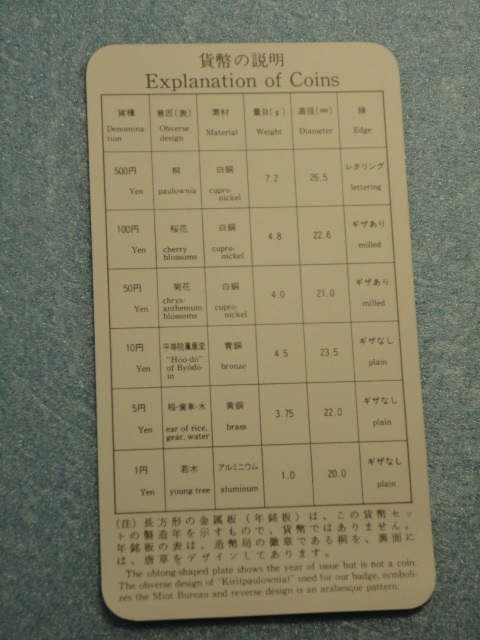 貨幣の説明
Explanation of Coins
貨種 意匠(表) 素材 量目(g) 直径(mm) 縁
Denomina-tion Obverse design Material Weight Diameter Edge
500円 桐 白銅 7.2 26.5 レタリング
Yen paulownia cupro-nickel lettering
100円 桜花 白銅 4.8 22.6 ギザあり
Yen cherry blossoms cupro-nickel milled
50円 菊花 白銅 4.0 21.0 ギザあり
Yen chrys-anthemum blossoms cupro-nickel milled
10円 平等院鳳凰堂 青銅 4.5 23.5 ギザなし
Yen "Hoo-do" of Byodo-in bronze plain
5円 稲・歯車・水 黄銅 3.75 22.0 ギザなし
Yen ear of rice, gear, water brass plain
1円 若木 アルミニウム 1.0 20.0 ギザなし
Yen young tree aluminum plain
(注) 長方形の金属板(年銘板)は、この貨幣セッ
トの製造年を示すもので、貨幣ではありません。
年銘板の表は、造幣局の徽章である桐を、裏面に
は、唐草をデザインしてあります。
The oblong-shaped plate shows the year of issue but is not a coin.
The obverse design of "Kiri(paulownia)" used for our badge, symboli-
zes the Mint Bureau and reverse design is an arabesque pattern.